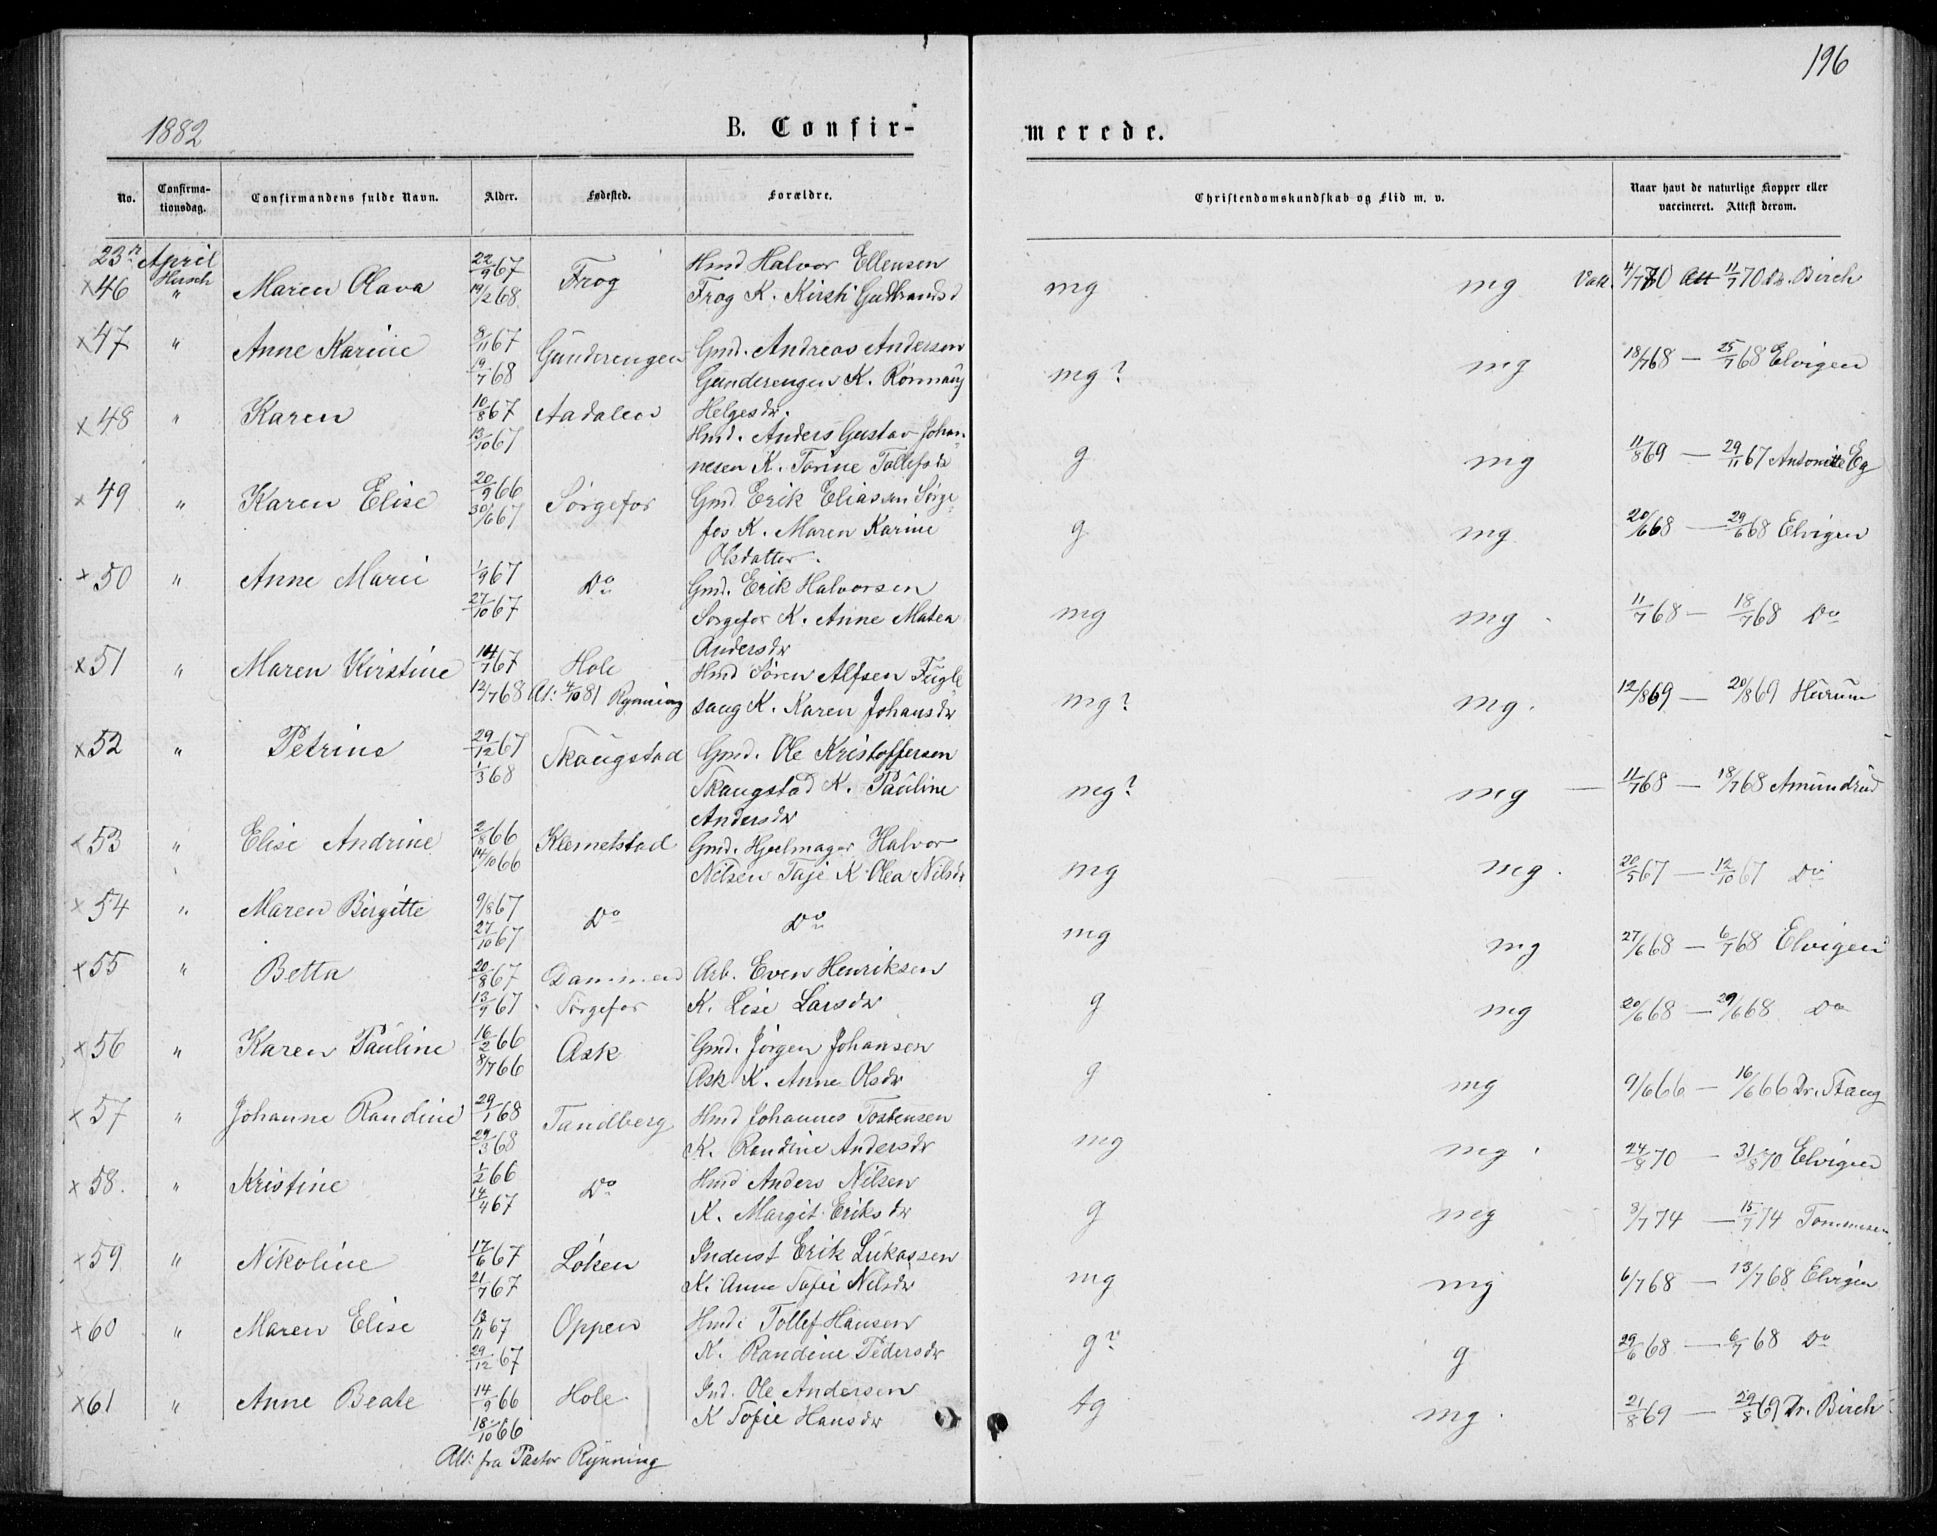 196
1882
B. Confir-
merede.
No. Confirma-tionsdag. Confirmandens fulde Navn. Alder. Fødested. Forældre. Christendomskundskab og Flid m. v. Naar havt de naturlige Kopper eller vaccineret. Attest derom.
23de April
Hmd Halvor Ellensen
×46 " Maren Olava 22/9 67 14/2 68 Frog Frog K. Kirsti Gudbrandsd mg mg Vacc. 4/7 70 Att 11/7 70 Dr. Birch
×47 " Anne Karine 8/11 67 19/1 68 Gunderengen Gmd. Andreas Andersen
Gunderengen K. Rønnaug
Helgesdr. mg? mg 18/7 68 — 25/7 68 Elvigen
×48 " Karen 10/8 67 13/10 67 Aadalen
Hmd. Anders Gustav Johan-
nesen K. Torine Tollefsdr g mg 11/8 69 — 29/11 67 Eg
×49 " Karen Elise 20/9 66 30/6 67 Sørgefos Gmd. Erik Eliassen Sørge-
fos K. Maren Karine
Olsdatter. g mg 20/6 68 — 29/6 68 Elvigen
×50 " Anne Marie 1/9 67 27/10 67 Do
Gmd. Erik Halvorsen
Sørgefos K. Anne Matea
Andersdr mg mg. 11/7 68 — 18/7 68 Do
×51 " Maren Kirstine 14/7 67 12/7 68 Hole
At: 4/10 81 Rynning
Hmd Søren Alfsen Fugle-
saug K. Karen Johansdr mg? mg. 12/8 69 — 20/8 69 Hurum
×52 " Petrine 29/12 67 1/3 68 Skaugstad Gmd. Ole Kristoffersen
Skaugstad K. Pauline
Andersdr mg? mg — 11/7 68 — 18/7 68 Amundrud
×53 " Elise Andrine 2/8 66 14/10 66 Klemetstad Gmd. Hjulmager Halvor
Nilsen Taje K Olea Nilsdr mg mg. 20/5 67 — 12/10 67 Do
×54 " Maren Birgitte 9/8 67 27/10 67 Do Do mg mg 27/6 68 — 6/7 68 Elvigen
×55 " Betta 20/8 67 13/9 67 Dammen
Sørgefos
Arb. Even Henriksen
K. Lise Larsdr g mg 20/6 68 — 29/6 68 Do
×56 " Karen Pauline 16/2 66 8/7 66 Ask Gmd. Jørgen Johansen
Ask K. Anne Olsdr g mg 9/6 66 — 16/6 66 Dr. Stang
×57 " Johanne Randine 29/1 68 29/3 68 Tandberg Hmd Johannes Tostensen
K. Randine Andersdr mg mg. 24/8 70 — 31/8 70 Elvigen
×58. " Kristine 1/2 66 14/4 67 Do Hmd Anders Nilsen
K. Margit Eriksdr g mg 8/7 74 — 15/7 74 Tommesen
×59 " Nikoline 17/6 67 21/7 67 Løken Inderst Erik Lukassen
K. Anne Sofie Nilsdr mg mg 6/7 68 — 13/7 68 Elvigen
×60 " Maren Elise 13/11 67 29/12 67 Oppen Hmd: Tollef Hansen
K. Randine Pedersdr g? g 29/6 68 — 6/7 68 Do
×61 " Anne Beate 14/9 66 18/10 66 Hole Ind. Ole Andersen
K Sofie Hansdr tg mg. 21/8 69 — 29/8 69 Dr. Birch
Att: fra Pastor Rynning